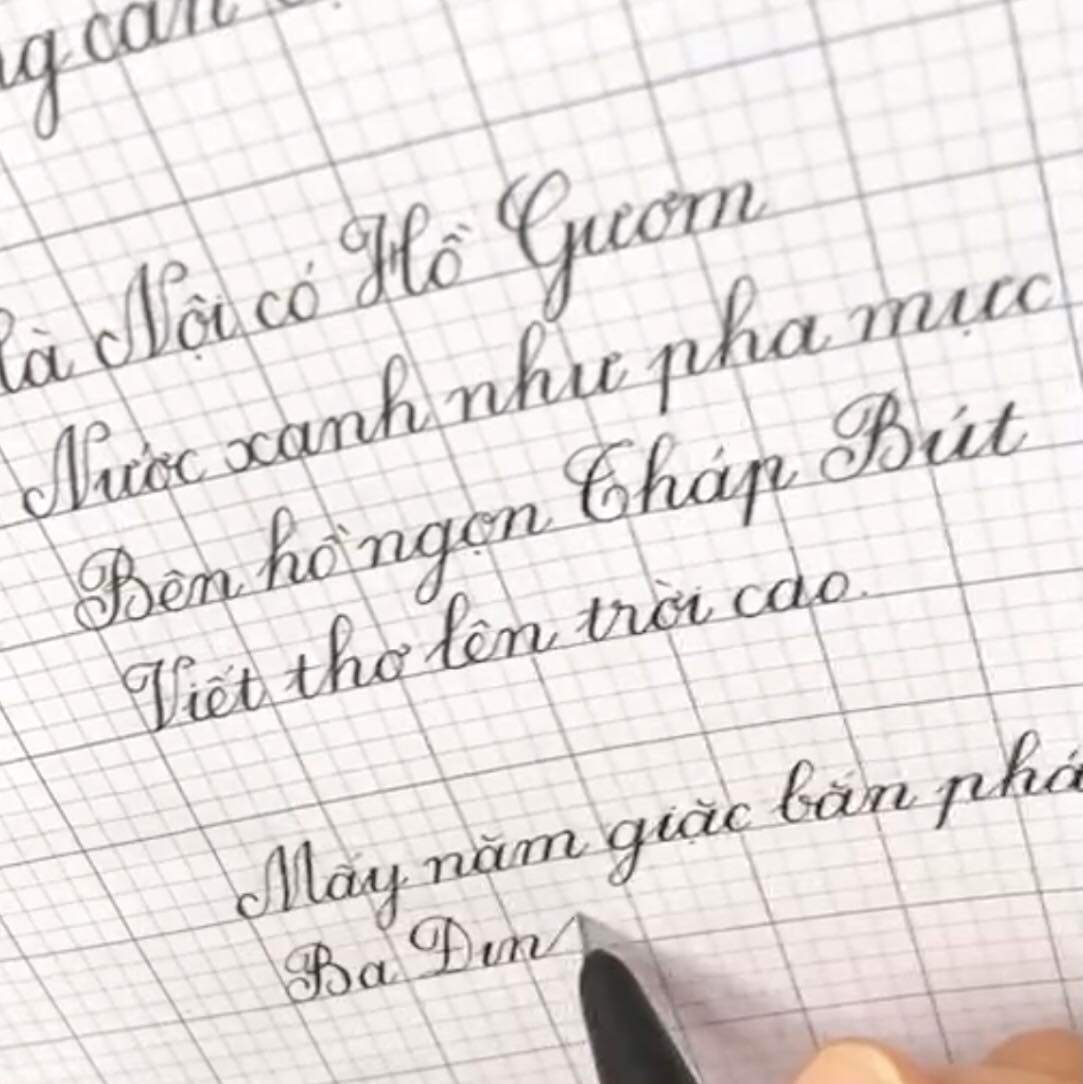 Hà Nội có Hồ Gươm
Nước xanh như pha mực
Bên hồ ngọn Tháp Bút
Viết thơ lên trời cao.
Mấy năm giặc bắn phá
Ba Đin